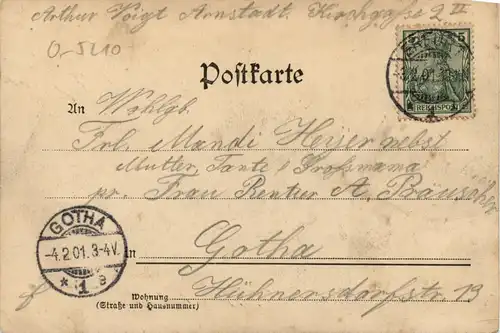 Arthur Voigt Arnstadt. Kirchgasse 2 II
O-5210
Postkarte
5
REICHSPOST
ERFURT
2.01.
An Wohlgb.
Frl. Mandi Heyer nebst
Mutter, Tante & Grossmama
pr. Frau Rentier A.
GOTHA
-4.2.01.3-4V.
* 1 e
in Gotha
Wohnung
(Straße und Hausnummer)
Hühnersdorfstr. 13